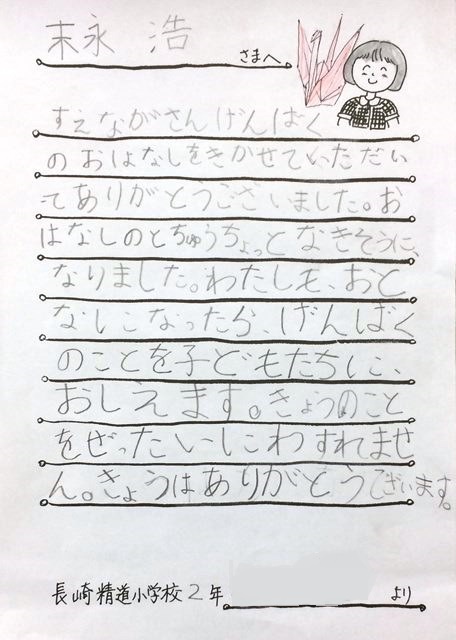 末永 浩
さまへ
すえながさんげんばく
のおはなしをきかせていっただい
てありがとうございました。お
はなしのとちゅうちょっとなきそうに、
なりました。わたしも、おと
なになったら、げんばく
のことを子どもたちに、
おしえます。きょうのこと
をぜったいにわすれませ
ん。きょうはありがとうございます。
長崎精道小学校2年
より